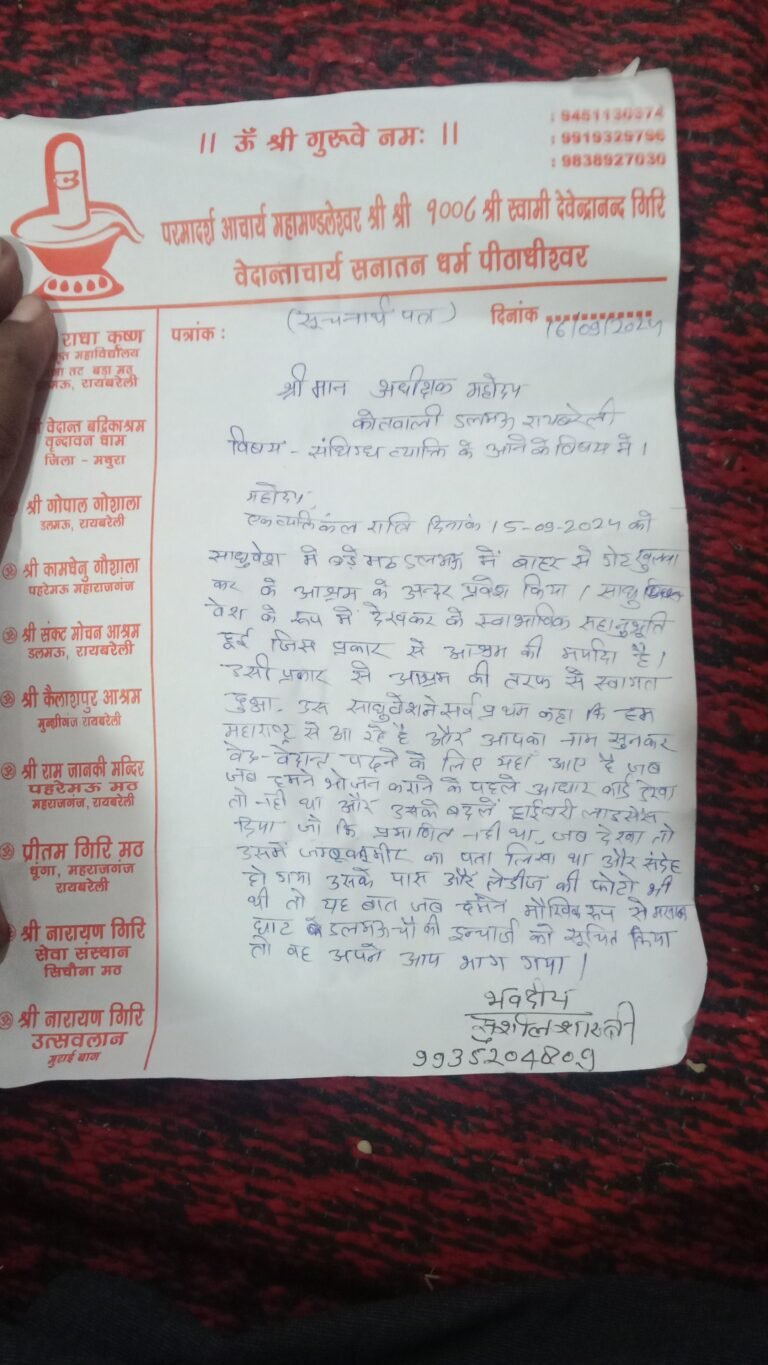 || ॐ श्री गुरूवे नमः ||
: 9451130374
: 9919329796
: 9838927030
परमादर्श आचार्य महामण्डलेश्वर श्री श्री १००८ श्री स्वामी देवेन्द्रानन्द गिरि
वेदान्ताचार्य सनातन धर्म पीठाधीश्वर
पत्रांक :
(सूचनार्थ पत्र)
दिनांक 16/09/2024
राधा कृष्ण
महाविद्यालय
तट बड़ा मठ
मऊ, रायबरेली
वेदान्त बद्रिकाश्रम
वृन्दावन धाम
जिला - मथुरा
श्री गोपाल गोशाला
डलमऊ, रायबरेली
ॐ श्री कामधेनु गौशाला
पहरेमऊ महाराजगंज
ॐ श्री संकट मोचन आश्रम
डलमऊ, रायबरेली
ॐ श्री कैलाशपुर आश्रम
मुन्शीगंज रायबरेली
ॐ श्री राम जानकी मन्दिर
पहरेमऊ मठ
महराजगंज, रायबरेली
ॐ प्रीतम गिरि मठ
चूंगा, महराजगंज
रायबरेली
ॐ श्री नारायण गिरि
सेवा संस्थान
सिचौना मठ
ॐ श्री नारायण गिरि
उत्सवलान
मुराई बाग
श्री मान अधीक्षक महोदय
कोतवाली डलमऊ रायबरेली
विषय - संधिग्ध व्याक्ति के आने के विषय में ।
महोदय,
एक व्यक्ति कल रात्रि दिनांक 15-09-2024 को
साधुवेश में बड़े मठ डलमऊ में बाहर से गेट खुलवा
कर के आश्रम के अन्दर प्रवेश किया । साधु
वेश के रूप में देखकर के स्वाभाविक सहानुभूति
हुई जिस प्रकार से आश्रम की मर्यादा है ।
उसी प्रकार से आश्रम की तरफ से स्वागत
हुआ. उस साधुवेश ने सर्व प्रथम कहा कि हम
महाराष्ट्र से आ रहे है और आपका नाम सुनकर
वेद-वेदान्त पढ़ने के लिए यहाँ आए है जब
जब हमने भोजन कराने के पहले आधार कार्ड देखा
तो नही था और उसके बदले ड्राईवरी लाइसेंस
दिया जो कि प्रमाणित नही था, जब देखा तो
उसमें जम्बूकश्मीर का पता लिखा था और संदेह
हो गया उसके पास और लेडीज की फोटो भी
थी तो यह बात जब हमने मौखिक रूप से
घाट डलमऊ चौकी इन्चार्ज को सूचित किया
तो वह अपने आप भाग गया ।
भवदीय
सुशील शास्त्री
9935204809